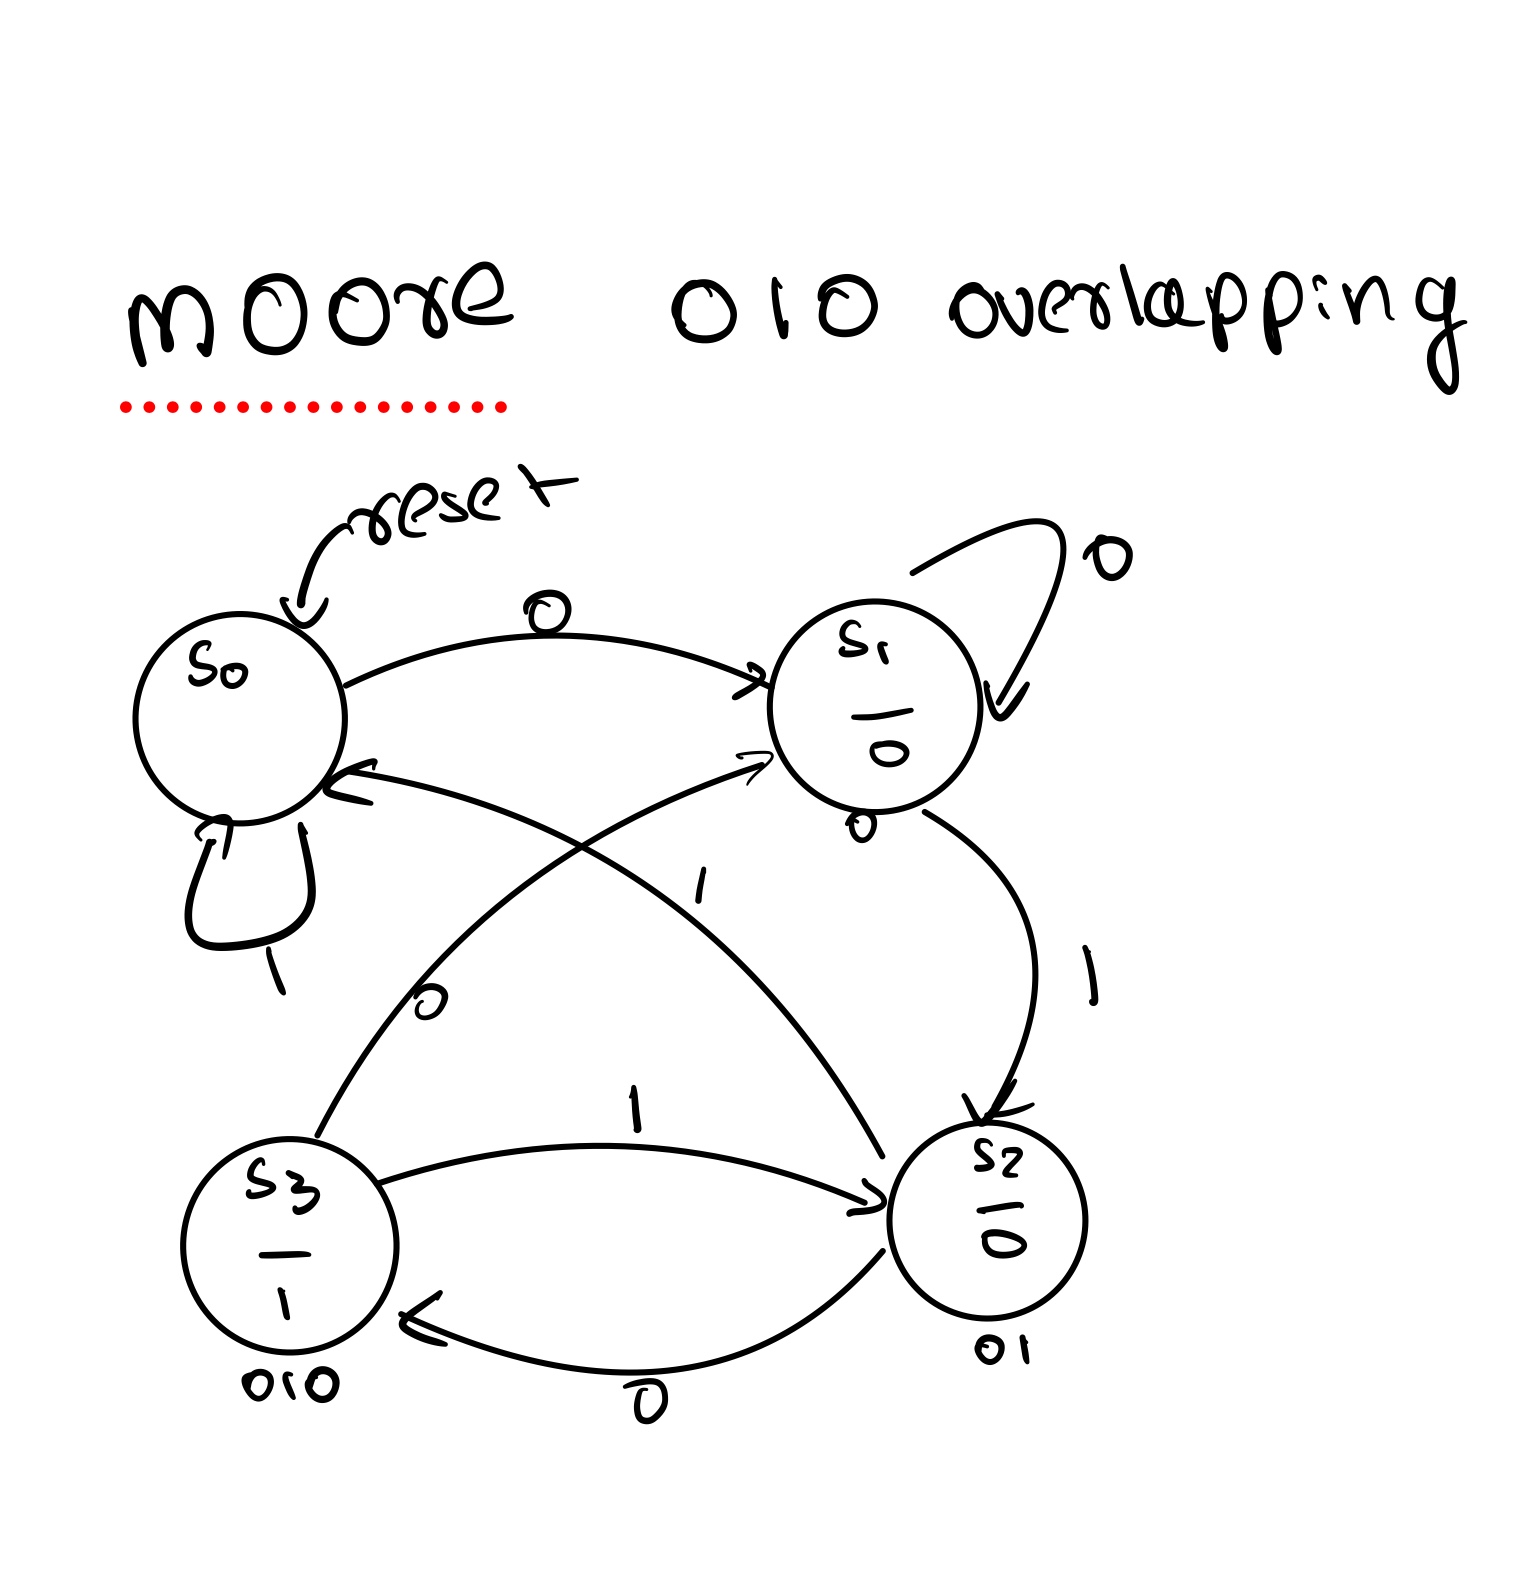 moore 010 overlapping
reset
0
0
S0
S1
0
0
1
1
0
1
1
S3
1
010
S2
0
01
0